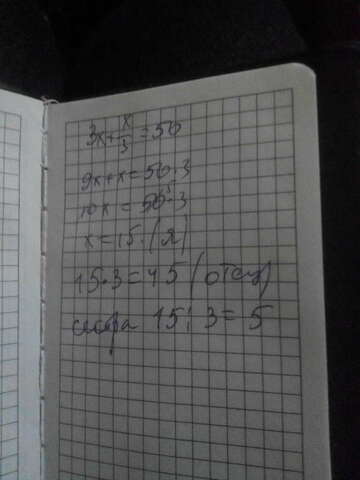 3x+x/3=50
9x+x=50·3
10x = 50·3
x=15 (я)
15·3=45 (отец)
сестра 15:3=5